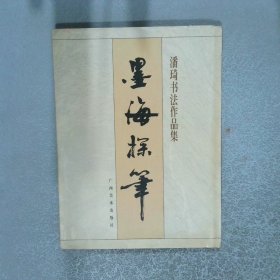 潘琦书法作品集
墨海探笔
广西美术出版社